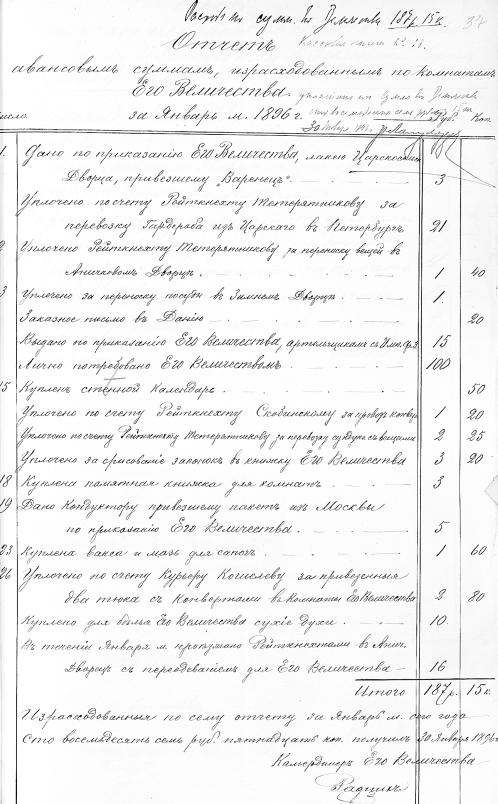 187р. 15к.
37
Отчетъ
авансовымъ суммамъ, израсходованнымъ по комнатамъ
Его Величества
за Январь м. 1896 г.
Число Руб. Коп.
1. Дано по приказанію Его Величества, лакею Царскосел.
Дворца, привезшему „Варенецъ" 3
Уплочено по счету Рейткнехту Тетерятникову за
перевозку Гардероба изъ Царскаго въ Петербургъ 21
2 Уплочено Рейткнехту Тетерятникову за переноску вещей въ
Аничковомъ Дворцѣ 1 40
3 Уплочено за переноску посуды въ Зимнемъ Дворцѣ 1.
Заказное письмо въ Данію 20
Выдано по приказанію Его Величества, артельщикамъ съ Имп. 15
Лично потребовано Его Величествомъ 100
15 Купленъ стѣнной календарь 50
Уплочено по счету Рейткнехту Скобинскому за провозъ 1 20
Уплочено по счету Рейткнехту Тетерятникову за перевозку сундука съ вещами 2 25
Уплочено за срисованіе запонокъ въ книжку Его Величества 3 20
18 Куплена памятная книжка для комнатъ 3
19 Дано Кондуктору привезшему пакетъ изъ Москвы
по приказанію Его Величества 5
23 Куплена вакса и мазь для сапогъ 1 60
26 Уплочено по счету Курьеру Кошелову за привезенные
два тюка съ конвертами въ комнаты Его Величества 2 80
Куплено для бѣлья Его Величества сухіе духи 10.
Въ теченіи Января м. Рейткнехтами в Анич.
Дворцѣ съ переодеваніемъ для Его Величества 16
Итого 187р. 15к.
Израсходованныя по сему отчету за Январь м. сто года
Сто восемьдесятъ семь руб. пятнадцать коп. получилъ 30 Января 1896г
Камердинеръ Его Величества
Радцихъ